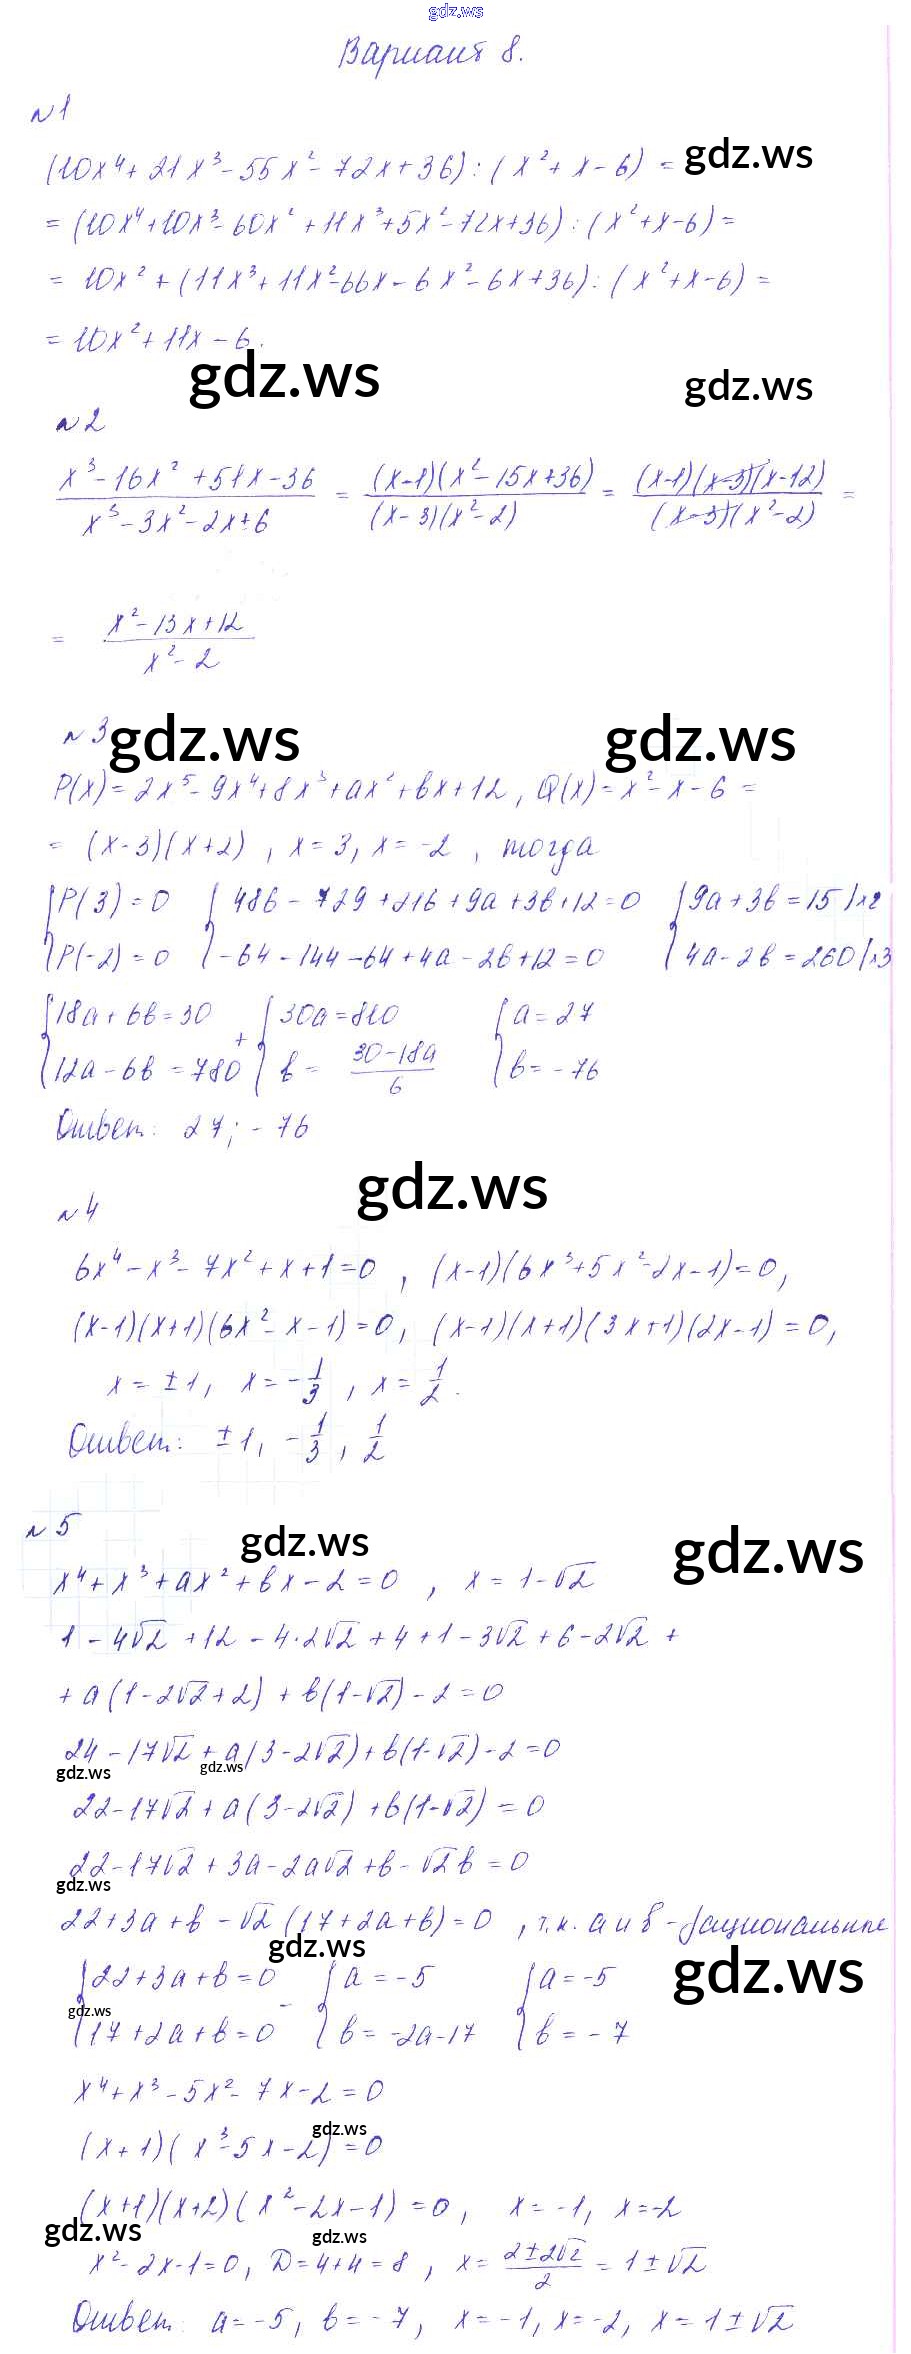 gdz.ws
Вариант 8.
№1
(10x⁴ + 21x³ - 55x² - 72x + 36) : (x² + x - 6) = gdz.ws
= (10x⁴ + 10x³ - 60x² + 11x³ + 5x² - 72x + 36) : (x² + x - 6) =
= 10x² + (11x³ + 11x² - 66x - 6x² - 6x + 36) : (x² + x - 6) =
= 10x² + 11x - 6.
gdz.ws gdz.ws
№2
(x³ - 16x² + 51x - 36)/(x³ - 3x² - 2x + 6) = ((x-1)(x² - 15x + 36))/((x-3)(x² - 2)) = ((x-1)(x-3)(x-12))/((x-3)(x² - 2)) =
= (x² - 13x + 12)/(x² - 2)
№3 gdz.ws gdz.ws
P(x) = 2x⁵ - 9x⁴ + 8x³ + ax² + bx + 12, Q(x) = x² - x - 6 =
= (x-3)(x+2), x = 3, x = -2, тогда
{P(3) = 0 {486 - 729 + 216 + 9a + 3b + 12 = 0 {9a + 3b = 15 |×2
{P(-2) = 0 {-64 - 144 - 64 + 4a - 2b + 12 = 0 {4a - 2b = 260 |×3
{18a + 6b = 30 + {30a = 810 {a = 27
{12a - 6b = 780 {b = (30 - 18a)/6 {b = -76
Ответ: 27; -76
gdz.ws
№4
6x⁴ - x³ - 7x² + x + 1 = 0, (x-1)(6x³ + 5x² - 2x - 1) = 0,
(x-1)(x+1)(6x² - x - 1) = 0, (x-1)(x+1)(3x+1)(2x-1) = 0,
x = ±1, x = -1/3, x = 1/2.
Ответ: ±1, -1/3, 1/2
№5
gdz.ws gdz.ws
x⁴ + x³ + ax² + bx - 2 = 0, x = 1 - √2
1 - 4√2 + 12 - 4·2√2 + 4 + 1 - 3√2 + 6 - 2√2 +
+ a(1 - 2√2 + 2) + b(1 - √2) - 2 = 0
24 - 17√2 + a(3 - 2√2) + b(1 - √2) - 2 = 0
gdz.ws gdz.ws
22 - 17√2 + a(3 - 2√2) + b(1 - √2) = 0
22 - 17√2 + 3a - 2a√2 + b - √2b = 0
gdz.ws
22 + 3a + b - √2(17 + 2a + b) = 0, т.к. a и b - рациональные
gdz.ws gdz.ws
{22 + 3a + b = 0 - {a = -5 {a = -5
gdz.ws
{17 + 2a + b = 0 {b = -2a - 17 {b = -7
x⁴ + x³ - 5x² - 7x - 2 = 0
gdz.ws
(x+1)(x³ - 5x - 2) = 0
(x+1)(x+2)(x² - 2x - 1) = 0, x = -1, x = -2
gdz.ws gdz.ws
x² - 2x - 1 = 0, D = 4 + 4 = 8, x = (2 ± 2√2)/2 = 1 ± √2
Ответ: a = -5, b = -7, x = -1, x = -2, x = 1 ± √2